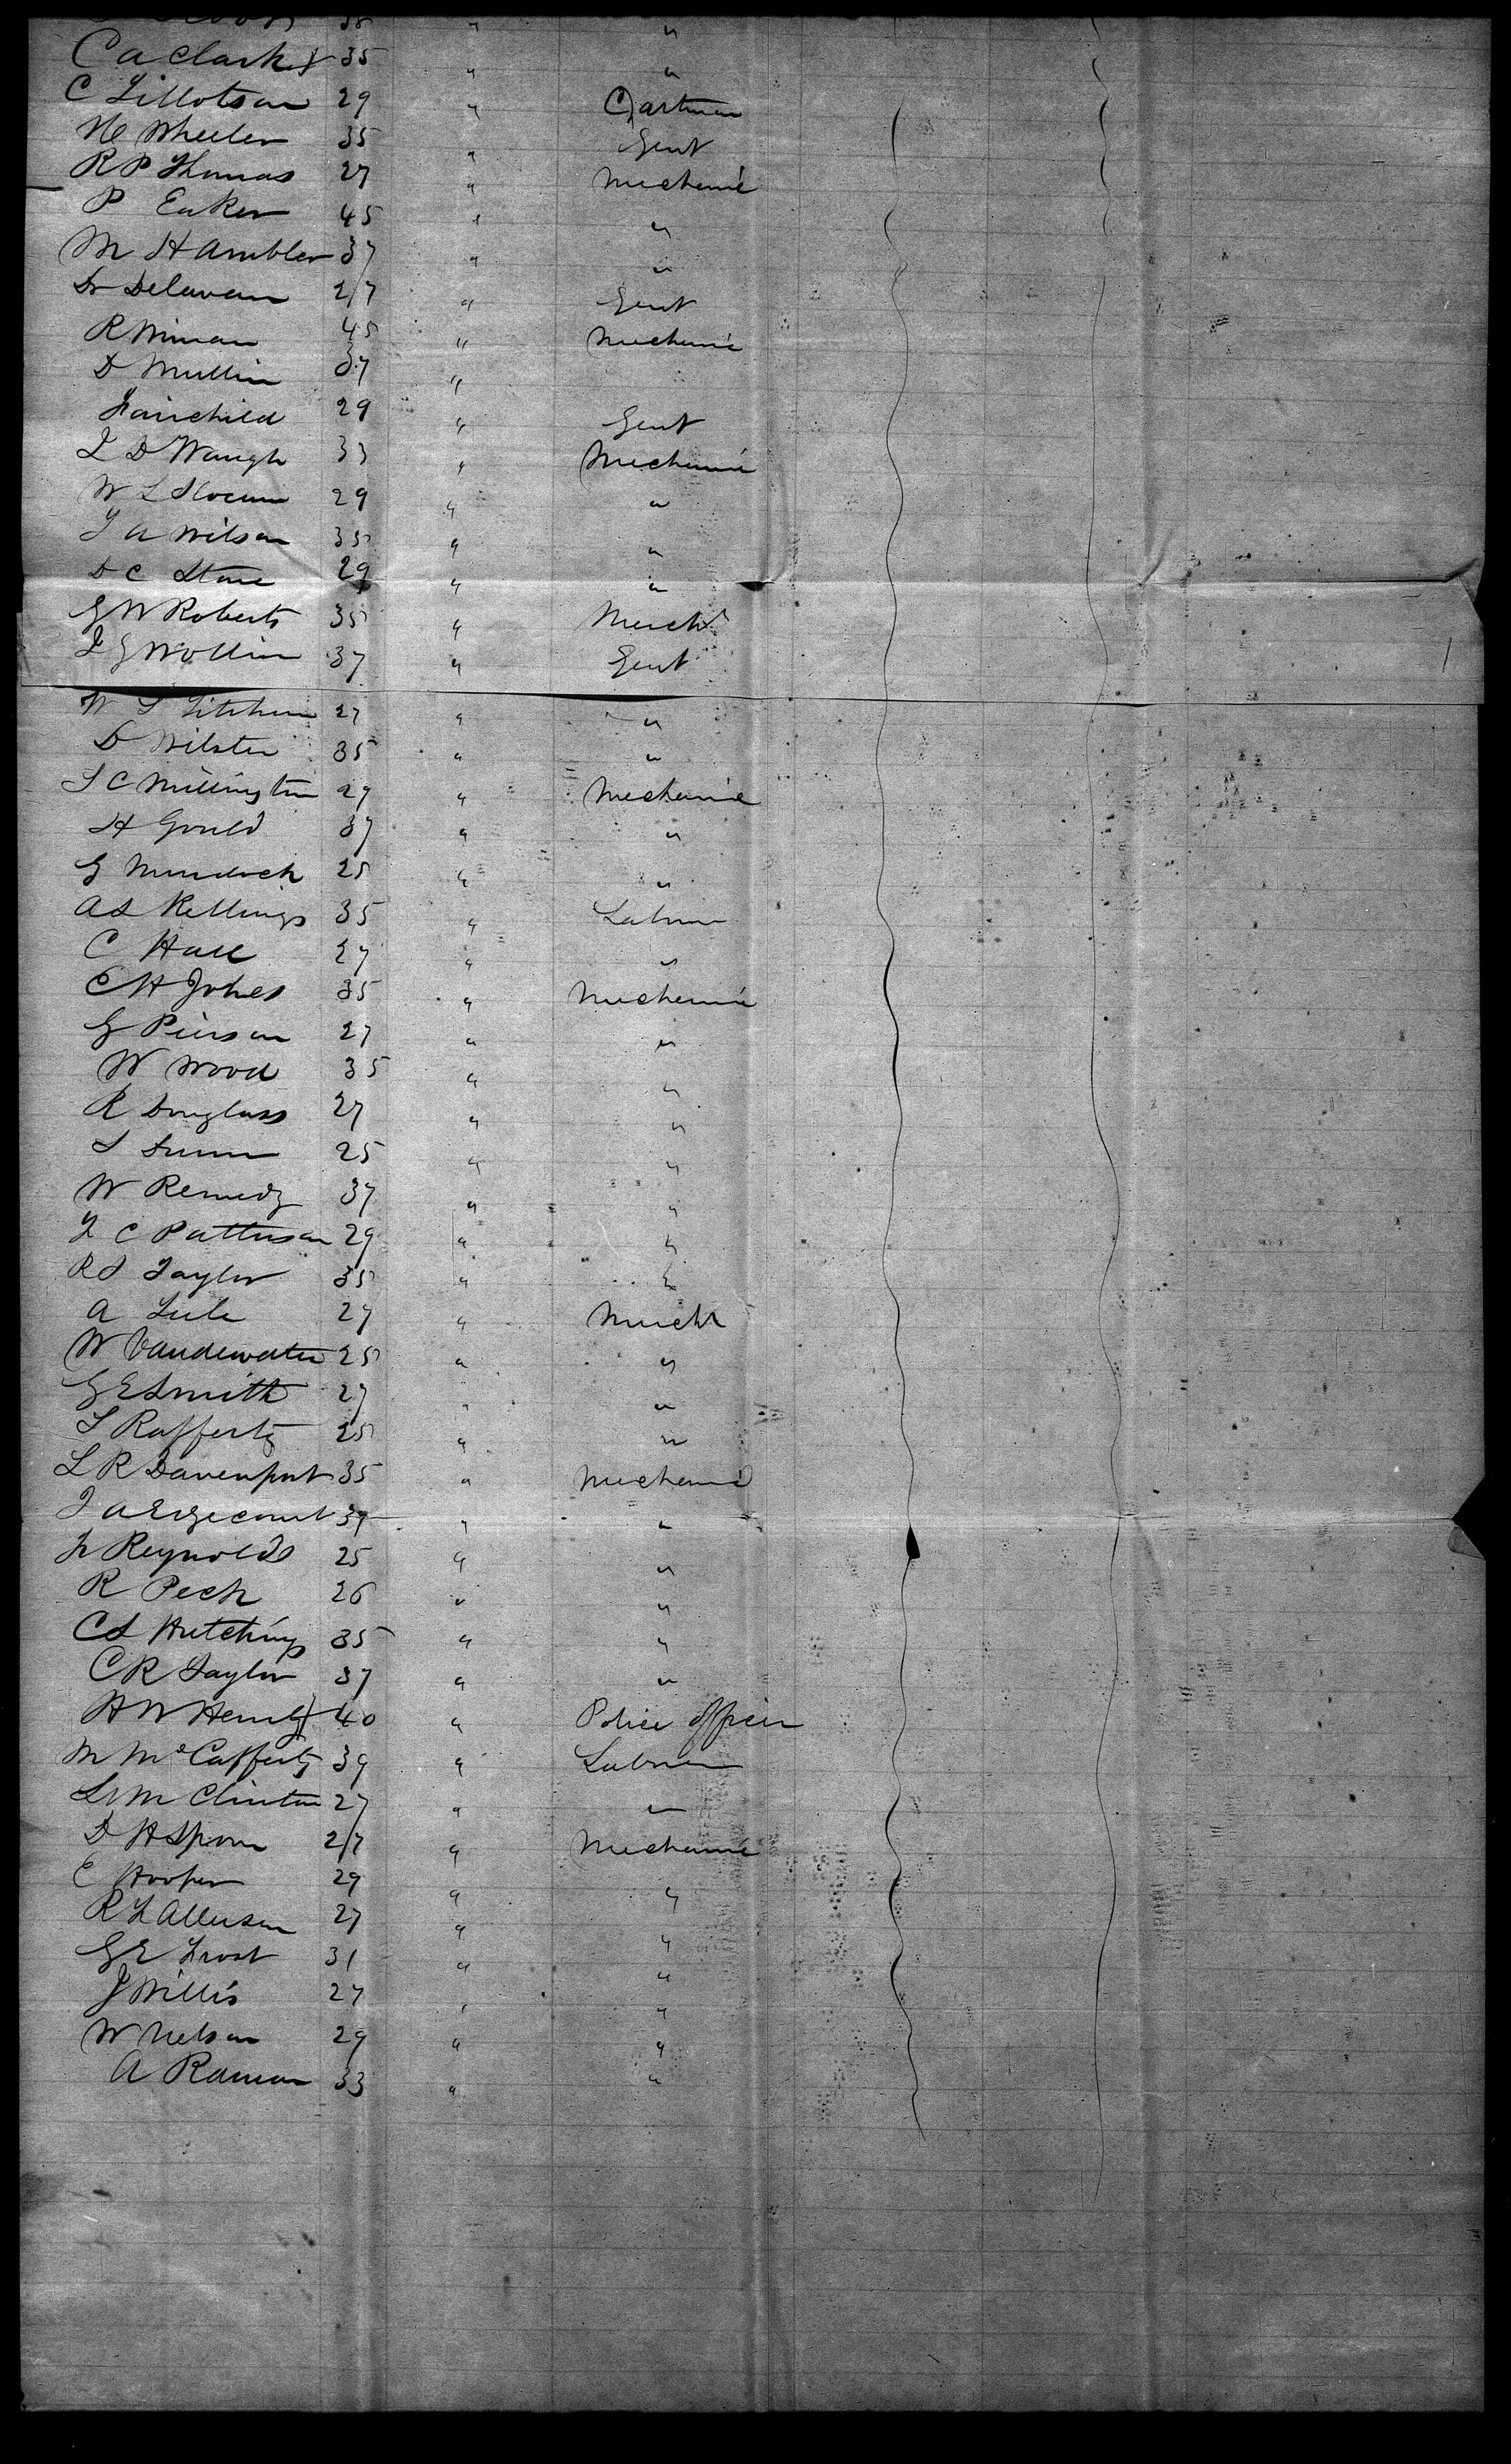 38 " "
C A Clark 35 " "
C Tillotson 29 " Cartman
W Wheeler 35 " Gent
R P Thomas 27 " Mechanic
P Eaker 45 " "
M H Ambler 37 " "
Dr Delavan 27 " Gent
R Winan 45 " Mechanic
D Mullin 37 "
Fairchild 29 " Gent
I D Waugh 33 " Mechanic
W L Slocum 29 " "
T A Wilson 35 " "
D C Stone 29 " "
G W Roberts 35 " Mercht
37 " Gent
W S 27 " "
D Wilster 35 " "
S C Millington 29 " Mechanic
H Gould 37 " "
G Murdock 25 " "
A S Kellings 35 " Labrer
C Hall 27 " "
C H Jones 35 " Mechanic
G Pierson 27 " "
W Wood 35 " "
R Douglass 27 " "
S Dunn 25 " "
W Remedy 37 " "
F C Patterson 29 " "
R S Taylor 35 " "
A 27 " Mercht
W Vandewater 25 " "
G E Smith 27 " "
S Rafferty 25 " "
L R Davenport 35 " Mechanic
J A Edgecomb 39 " "
Reynolds 25 " "
R Peck 26 " "
C S Hutchings 35 " "
C R Taylor 37 " "
H W 40 " Police Officer
M McCafferty 39 " Labrer
Clinton 27 " "
D H Spoon 27 " Mechanic
E Hooper 29 " "
R L Allerson 27 " "
G E Frost 31 " "
J Willis 27 " "
W Nelson 29 " "
A Raman 33 " "